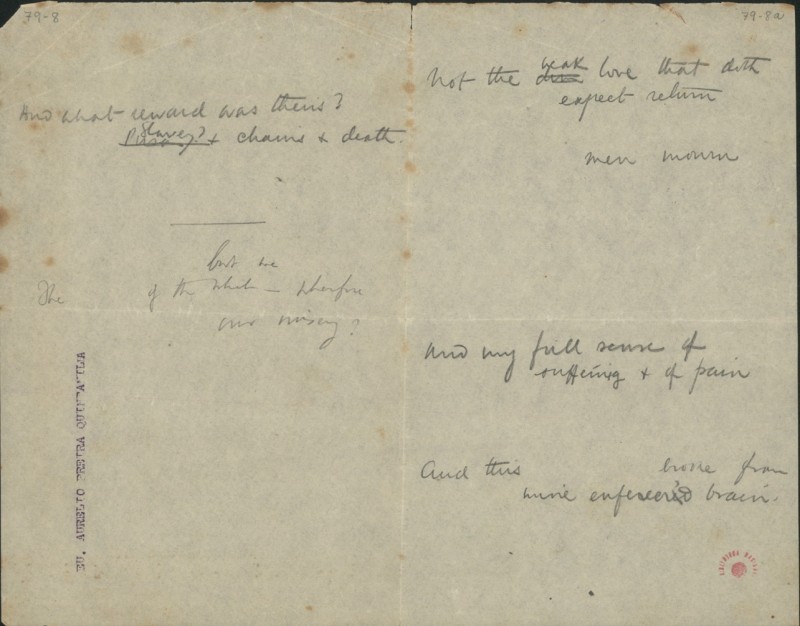 79-8
And what reward was theirs?
Slavery? & chains & death.
but we
The of the what — wherefore
our misery?
EU, AURELIO
79-8a
weak
Not the love that doth
expect return
men mourn
And my full sense of
suffering & of pain
And this broke from
mine enfevered brain.